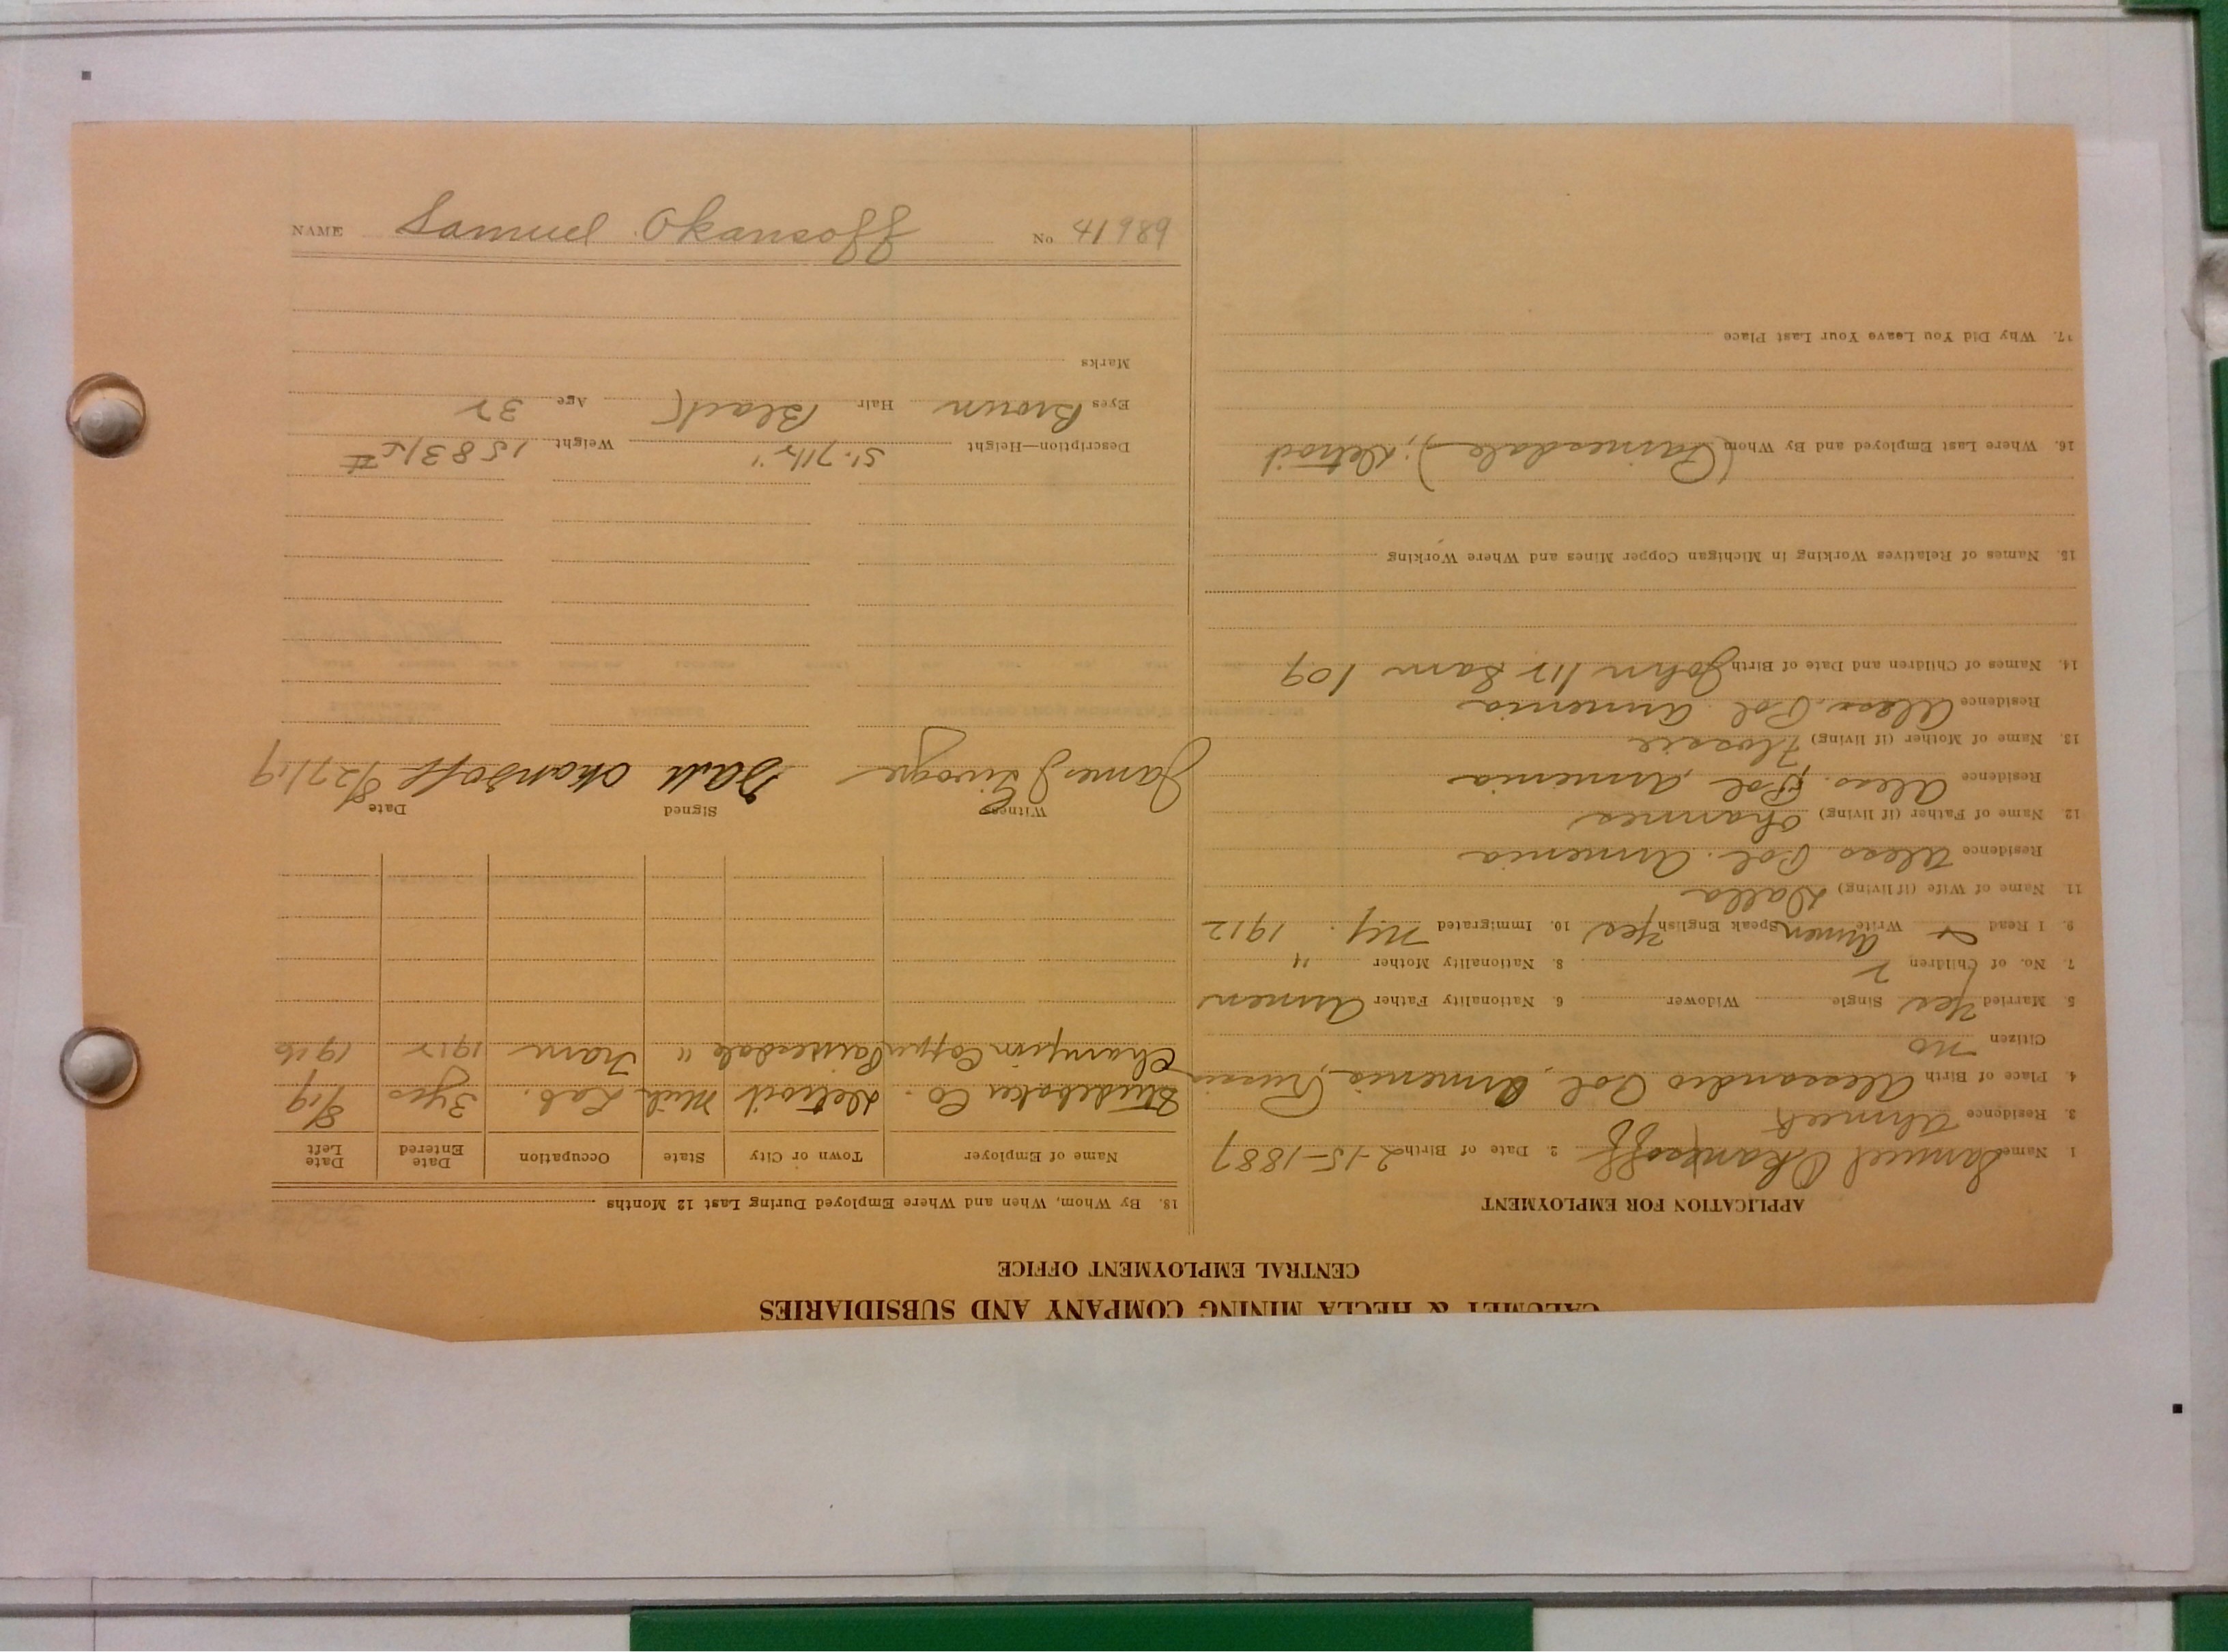 CALUMET & HECLA MINING COMPANY AND SUBSIDIARIES
CENTRAL EMPLOYMENT OFFICE
APPLICATION FOR EMPLOYMENT
1 Name Samuel Okansoff 2. Date of Birth 2-15-1887
3. Residence Ahmeek
4. Place of Birth Alessandro Pol, Armenia, Russia
Citizen no
5. Married Yes Single Widower 6. Nationality Father Armen
7. No. of Children 2 8. Nationality Mother "
9. I Read & Write Armen Speak English Yes 10. Immigrated N.Y. 1912
11. Name of Wife (if living) Dalla
Residence Aless Pol. Armenia
12. Name of Father (if living) Ohannes
Residence Aless. Pol Armenia
13. Name of Mother (if living) Flossie
Residence Aless. Pol Armenia
14. Names of Children and Date of Birth John 112 Sam 109
15. Names of Relatives Working in Michigan Copper Mines and Where Working
16. Where Last Employed and By Whom (Painesdale); Detroit
17. Why Did You Leave Your Last Place
18. By Whom, When and Where Employed During Last 12 Months
Name of Employer Town or City State Occupation Date Entered Date Left
Studebaker Co. Detroit Mich Lab. 3 yrs 8/19
Champion Copper Painesdale " Tram 1912 1916
Witness Signed Date
James J Sam okansoff 8/27/19
Description—Height 5'.7 1/2" Weight 158 3/5 #
Eyes Brown Hair Black Age 32
Marks
NAME Samuel Okansoff No 41989